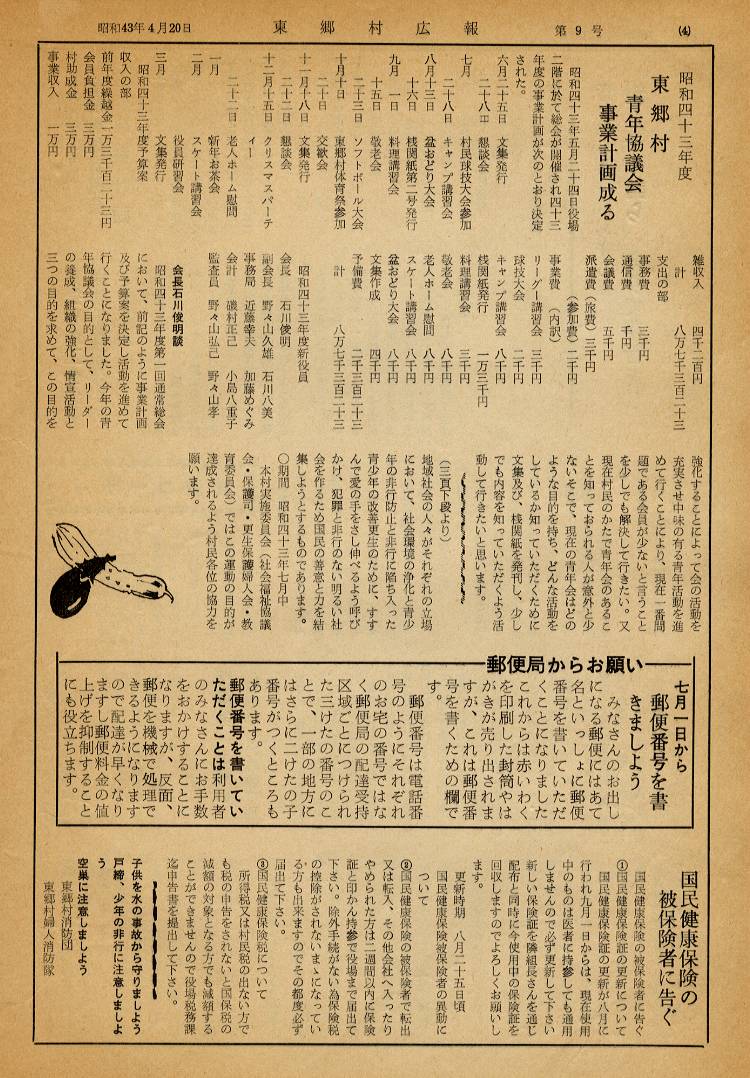 昭和43年4月20日
東郷村広報
第9号
(4)
昭和四十三年度
東郷村
青年協議会
事業計画成る
昭和四十三年五月二十四日役場
二階に於て総会が開催され四十三
年度の事業計画が次のとおり決定
された。
六月二十五日 文集発行
二十八日 懇談会
七月 村民球技大会参加
二十八日 キャンプ講習会
八月十三日 盆おどり大会
十六日 桟関紙第二号発行
九月 一日 料理講習会
十五日 敬老会
二十三日 ソフトボール大会
十月十日 東郷村体育祭参加
二十日 交歓会
十一月十八日 文集発行
二十二日 懇談会
十二月十五日 クリスマスパーテ
ィー
二十二日 老人ホーム慰問
一月 新年お茶会
二月 スケート講習会
役員研習会
三月 文集発行
昭和四十三年度予算案
収入の部
前年度繰越金 一万三千百二十三円
会員負担金 三万円
村助成金 三万円
事業収入 一万円
雑収入 四千二百円
計 八万七千三百二十三
支出の部
事務費 三千円
通信費 千円
会議費 五千円
派遣費(旅費) 三千円
(参加費) 二千円
事業費 (内訳)
リーダー講習会 三千円
球技大会 二千円
キャンプ講習会 八千円
桟関紙発行 一万三千円
料理講習会 三千円
敬老会 八千円
老人ホーム慰問 八千円
スケート講習会 八千円
盆おどり大会 八千円
文集作成 四千円
予備費 二千三百二十三
計 八万七千三百二十三
昭和四十三年度新役員
会長 石川俊明
副会長 野々山久雄 石川八美
事務局 近藤幸夫 加藤めぐみ
会計 磯村正己 小島八重子
監査員 野々山弘己 野々山孝
会長石川俊明談
昭和四十三年度第一回通常総会
において、前記のように事業計画
及び予算案を決定し活動を進めて
行くことになりました。今年の青
年協議会の目的として、リーダー
の養成、組織の強化、情宣活動と
三つの目的を求めて、この目的を
強化することによって会の活動を
充実させ中味の有る青年活動を進
めて行くことにより、現在一番問
題である会員が少ないと言うこと
を少しでも解決して行きたい。又
現在村民のかたで青年会のあるこ
とを知っておられる人が意外と少
ないそこで、現在の青年会はどの
ような目的を持ち、どんな活動を
しているか知っていただくために
文集及び、桟関紙を発刊し、少し
でも内容を知っていただくよう活
動して行きたいと思います。
(三頁下段より)
地域社会の人々がそれぞれの立場
において、社会環境の浄化と青少
年の非行防止と非行に陥ち入った
青少年の改善更生のために、すす
んで愛の手をさし伸べるよう呼び
かけ、犯罪と非行のない明るい社
会を作るため国民の善意と力を結
集しようとするものであります。
〇期間 昭和四十三年七月中
本村実施委員会(社会福祉協議
会・保護司・更生保護婦人会・教
育委員会)ではこの運動の目的が
達成されるよう村民各位の協力を
願います。
郵便局からお願い
七月一日から
郵便番号を書
きましよう
みなさんのお出し
になる郵便にはあて
名といっしょに郵便
番号を書いていただ
くことになりました
これからは赤いわく
を印刷した封筒やは
がきが売り出されま
すが、これは郵便番
号を書くための欄で
す。
郵便番号は電話番
号のようにそれぞれ
のお宅の番号ではな
く郵便局の配達受持
区域ごとにつけられ
た三けたの番号のこ
とで、一部の地方に
はさらに二けたの子
番号がつくところも
あります。
郵便番号を書いてい
ただくことは利用者
のみなさんにお手数
をおかけすることに
なりますが、反面、
郵便を機械で処理で
きるようになります
ので配達が早くなり
ますし郵便料金の値
上げを抑制すること
にも役立ちます。
国民健康保険の
被保険者に告ぐ
国民健康保険の被保険者に告ぐ
①国民健康保険証の更新について
国民健康保険証の更新が八月に
行われ九月一日からは、現在使用
中のものは医者に持参しても通用
しませんので必ず更新して下さい
新しい保険証を隣組長さんを通じ
配布と同時に今使用中の保険証を
回収しますのでよろしくお願いし
ます。
更新時期 八月二十五日頃
国民健康保険被保険者の異動に
ついて
②国民健康保険の被保険者で転出
又は転入、その他会社へ入ったり
やめられた方は二週間以内に保険
証と印かん持参で役場まで届出て
下さい。除外手続がない為保険税
の控除がされないまゝになってい
る方も出来ますのでその都度必ず
届出て下さい。
③国民健康保険税について
所得税又は村民税の出ない方で
も税の申告をされないと国保税の
減額の対象となる方でも減額する
ことができませんので役場税務課
迄申告書を提出して下さい。
子供を水の事故から守りましょう
戸締、少年の非行に注意しましょ
う
空巣に注意しましょう
東郷村消防団
東郷村婦人消防隊